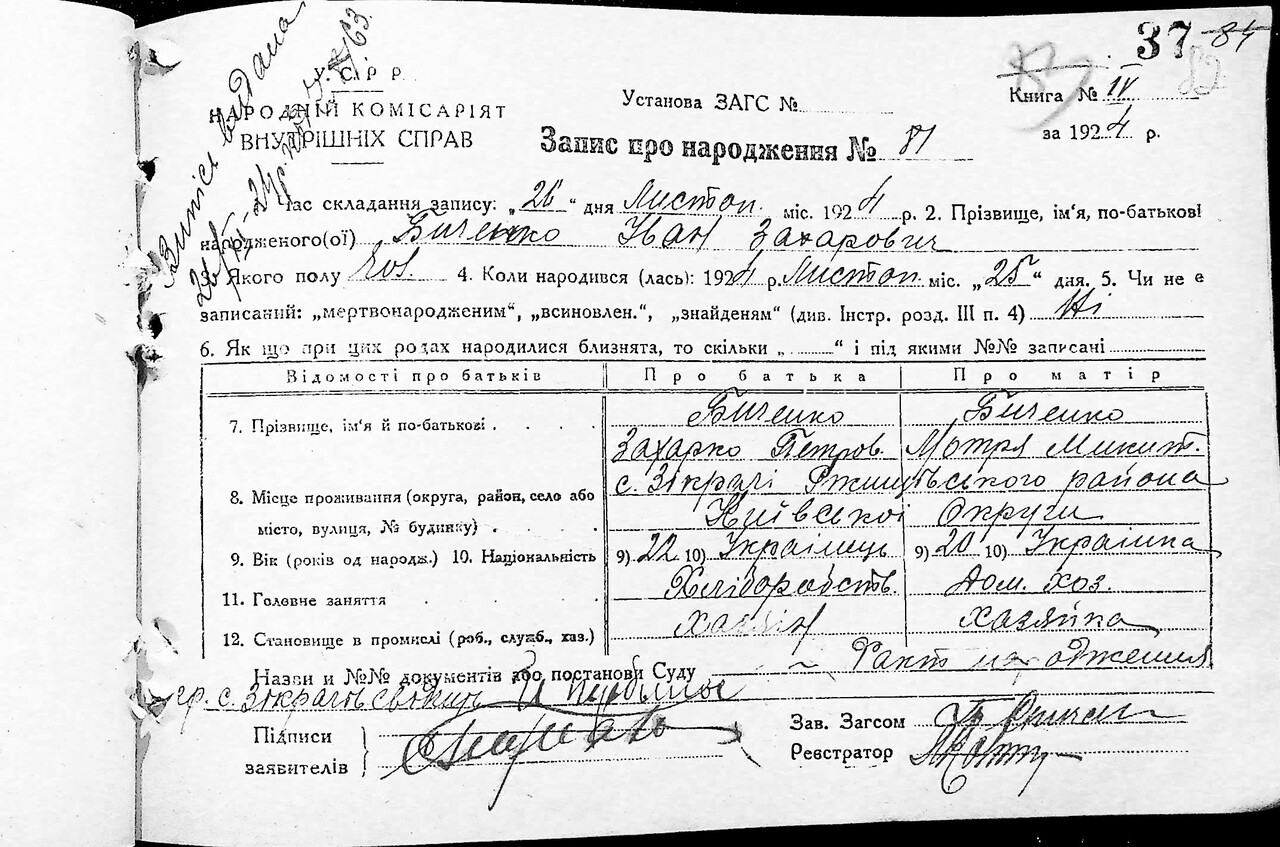 37 84
82
Виписі видана
У. С. Р. Р.
НАРОДНІЙ КОМІСАРІЯТ
ВНУТРІШНІХ СПРАВ
Установа ЗАГС №
Книга № IV
за 1924 р.
Запис про народження № 81
Час складання запису: „26“ дня Листоп. міс. 1924 р. 2. Прізвище, ім'я, по-батькові
народженого(ої) Биченко Іван Захарович
3. Якого полу чол. 4. Коли народився (лась): 1924 р. Листоп. міс. „25“ дня. 5. Чи не є
записаний: „мертвонародженим“, „всиновлен.“, „знайденям“ (див. Інстр. розд. III п. 4) Ні
6. Як що при цих родах народилися близнята, то скільки „ “ і під якими №№ записані
Відомості про батьків Про батька Про матір
7. Прізвище, ім'я й по-батькові . . . . Биченко Биченко
Захарко Петров. Мотря Микит.
8. Місце проживання (округа, район, село або с. Зікрачі Ржищівського района
місто, вулиця, № будинку) . . . . Київської Округи
9. Вік (років од народж.) 10. Національність 9) 22 10) Українець 9) 20 10) Українка
11. Головне заняття . . . . Хліборобств. Дом. хоз.
12. Становище в промислі (роб., служб., хаз.) Хазяїн Хазяйка
Назви и №№ документів або постанови Суду Факт народження
гр. с. Зікрачів
Підписи
заявителів
Зав. Загсом
Реєстратор